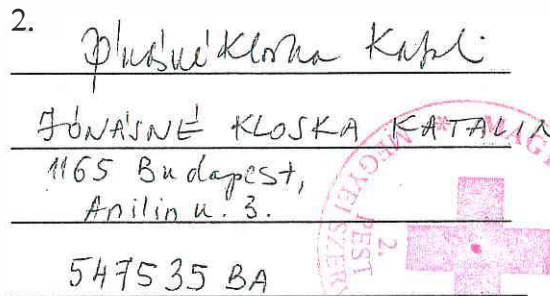 2.
Jónásné Kloska Kata
JÓNÁSNÉ KLOSKA KATALIN
1165 Budapest,
Anilin u. 3.
547535 BA
MAGY
MEGYEI SZER
PEST
2.